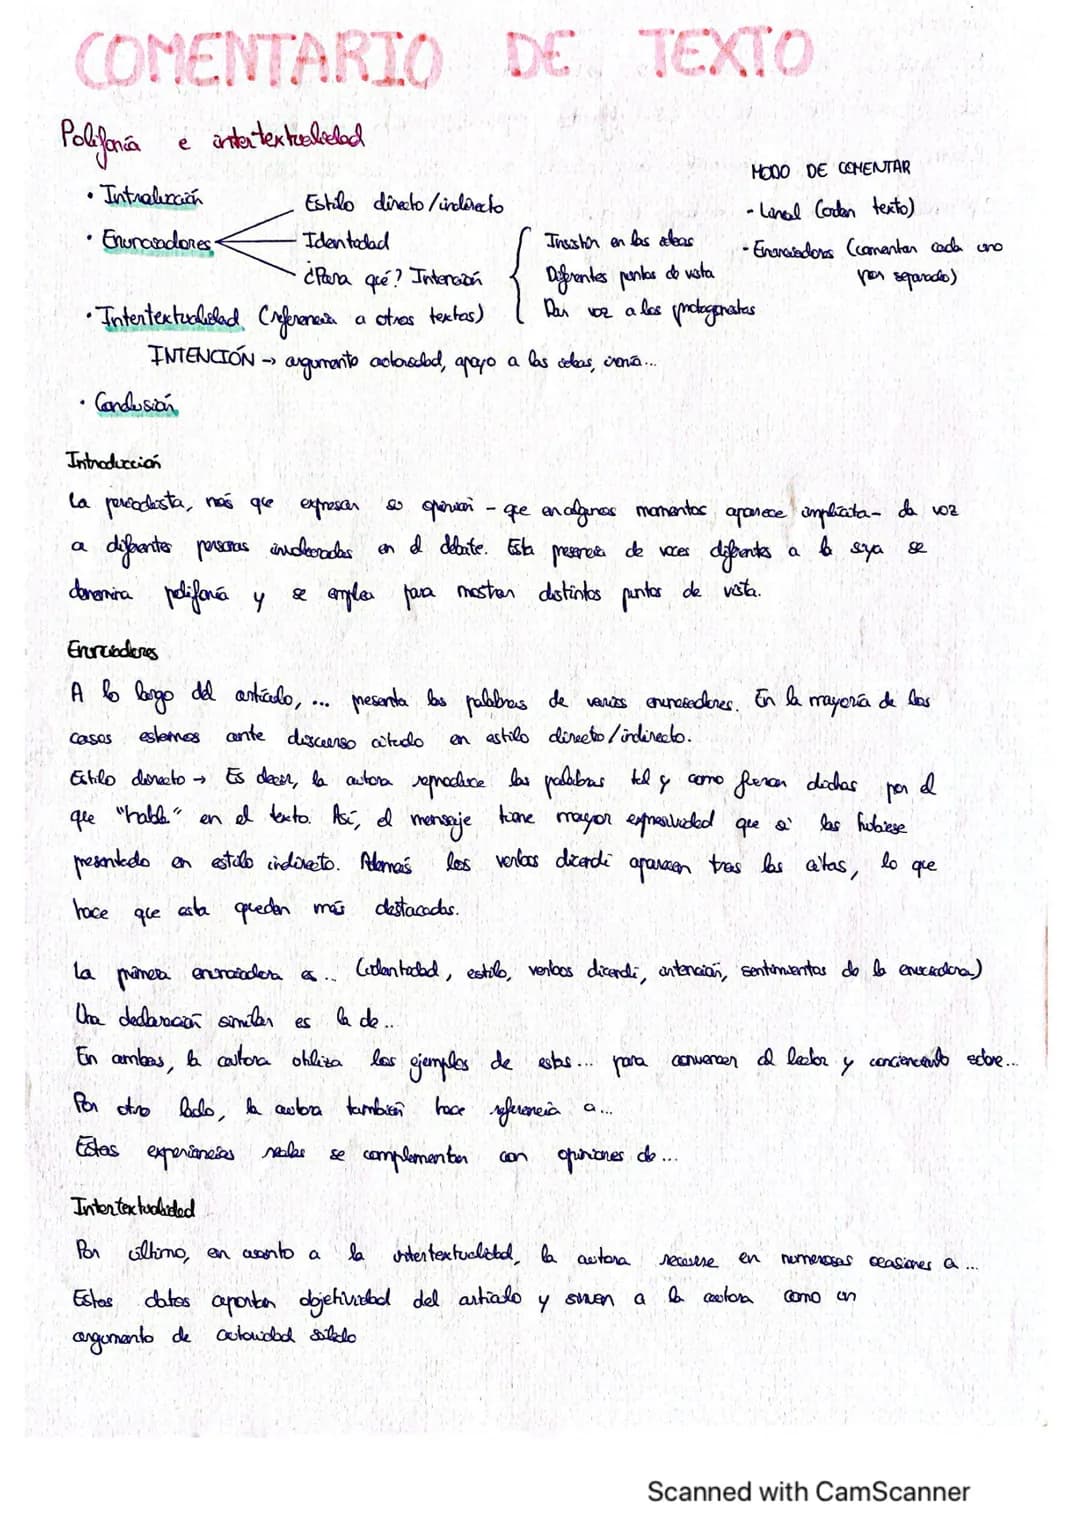 COMENTARIO DE TEXTO
Polifonía e intertextualidad
• Introducción
• Enunciadores
Estilo directo/indirecto
Identidad
¿Para qué? Intención
Insistir en las ideas
Diferentes puntos de vista
Dar voz a los protagonistas
MODO DE COMENTAR
- Lineal (orden texto)
- Enunciadores (comentar cada uno
por separado)
• Intertextualidad (referencia a otros textos)
INTENCIÓN → argumento autoridad, apoyo a las ideas, ironía...
• Conclusión
Introducción
La periodista, más que expresar su opinión - que en algunos momentos aparece implícita - da voz
a diferentes personas involucradas en el debate. Esta presencia de voces diferentes a la suya se
denomina polifonía y se emplea para mostrar distintos puntos de vista.
Enunciadores
A lo largo del artículo, ... presenta las palabras de varios enunciadores. En la mayoría de los
casos estamos ante discurso citado en estilo directo/indirecto.
Estilo directo → Es decir, la autora reproduce las palabras tal y como fueron dichas por el
que "habla" en el texto. Así, el mensaje tiene mayor expresividad que si las hubiese
presentado en estilo indirecto. Además los verbos dicendi aparecen tras las citas, lo que
hace que esta quedan más destacadas.
La primera enunciadora es ... (identidad, estilo, verbos dicendi, intención, sentimientos de la enunciadora)
Una declaración similar es la de ..
En ambas, la autora utiliza los ejemplos de estas ... para convencer al lector y concienciarlo sobre ...
Por otro lado, la autora también hace referencia a ...
Estas experiencias reales se complementan con opiniones de ...
Intertextualidad
Por último, en cuanto a la intertextualidad, la autora recurre en numerosas ocasiones a ...
Estos datos aportan objetividad del artículo y sirven a la autora como un
argumento de autoridad sólido
Scanned with CamScanner